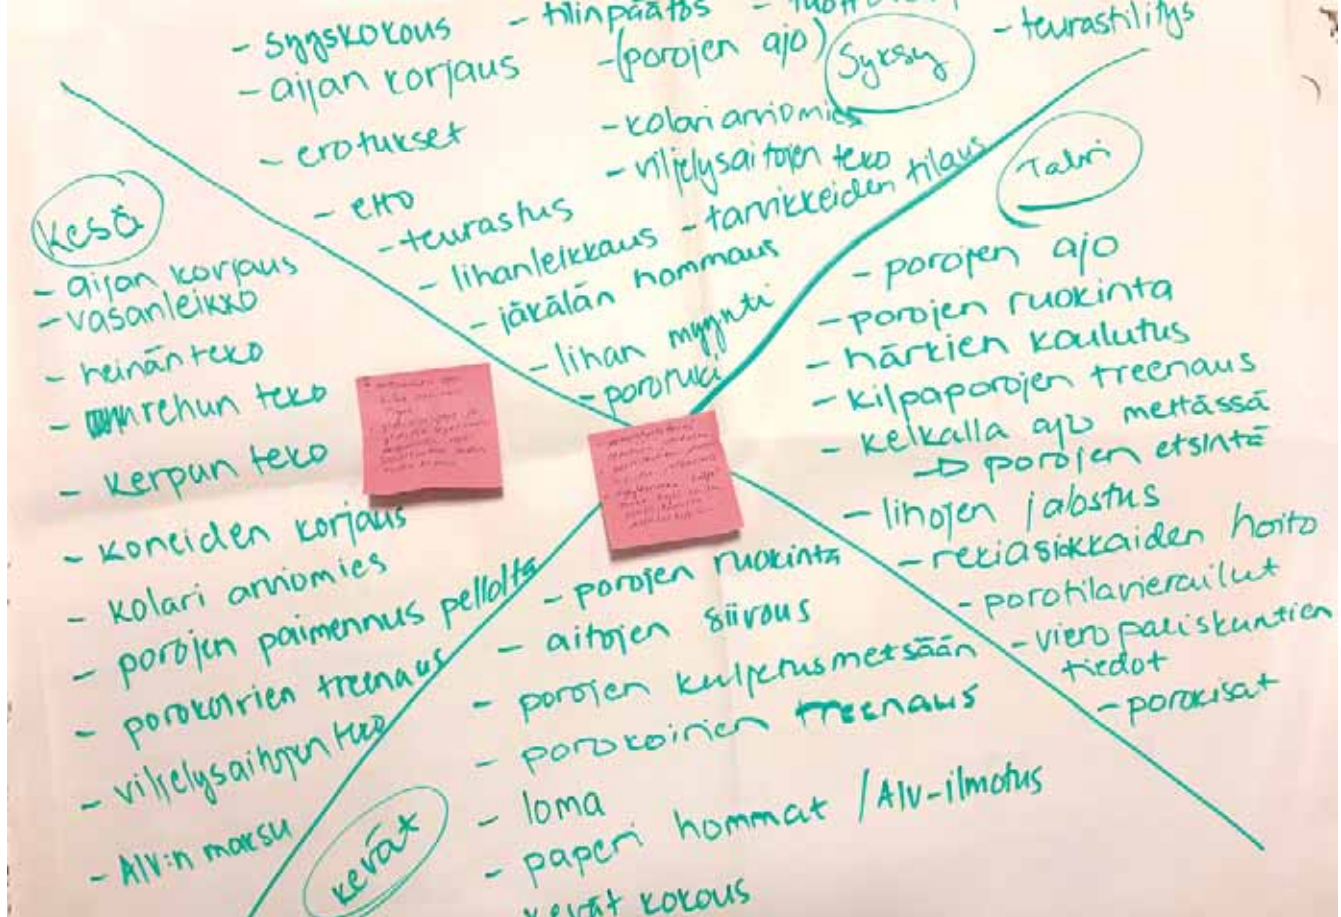 - syyskokous
- aijan korjaus
- erotukset
- etto
- teurastus
- lihanleikkaus
- jäkälän hommaus
- lihan myynti
- porotuki
- tilinpäätös
- (porojen ajo)
- kolari arviomies
- viljelysaitojen teko
- tarvikkeiden tilaus
Syksy
- teurastilitys
Talvi
- porojen ajo
- porojen ruokinta
- härkien koulutus
- kilpaporojen treenaus
- kelkalla ajo mettässä
→ porojen etsintä
- lihojen jalostus
- rekiasiakkaiden hoito
- porotilavierailut
- vieropaliskuntien
tiedot
- porokisat
Kesä
- aijan korjaus
- vasanleikko
- heinän teko
- rehun teko
- kerpun teko
- koneiden korjaus
- kolari arviomies
- porojen paimennus pellolta
- porokoirien treenaus
- viljelysaitojen teko
- ALV:n maksu
kevät
- porojen ruokinta
- aitojen siivous
- porojen kuljetus metsään
- porokoirien treenaus
- loma
- paperi hommat / ALV-ilmotus
kevät kokous